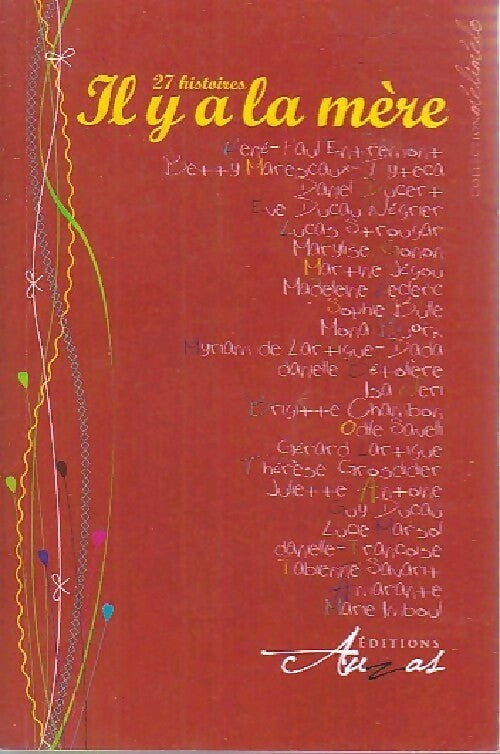 27 histoires
Il y a la mère
René-Paul Entremont
Betty Marescaux-Tyteca
Daniel Ducert
Eve Ducau Négrier
Lucas Strougar
Marylise Gonon
Martine Jégou
Madeleine Leclerc
Sophie Dulé
Mona
Myriam de Lartigue-Dada
danielle
Isa
Brigitte Chambon
Odile Savelli
Gérard Lartigue
Thérèse Grosdidier
Juliette Antoine
Guy Ducau
Lucie Marsol
danielle-Françoise
Fabienne Savarit
Amarante
Marie Imboul
ÉDITIONS
Auzas
COLLECTION